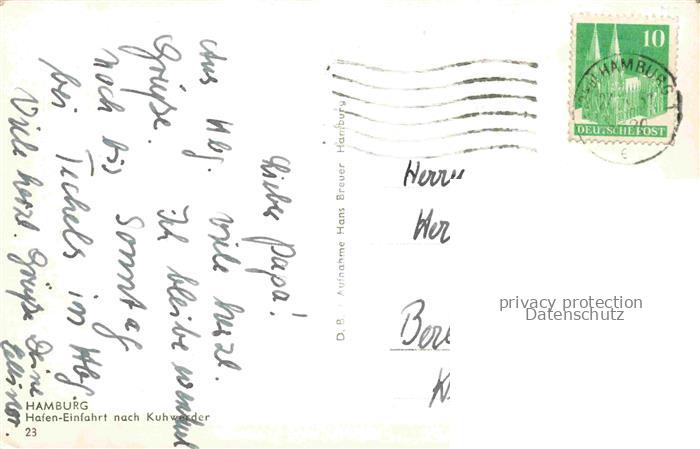 Lieber Papa!
Aus Hbg. viele herzl.
Grüße. Ich bleibe
noch bis Sonntag
bei Tichels in Hbg
Viele herzl. Grüße Deine
Elinor.
D. B. Aufnahme Hans Breuer Hamburg
HAMBURG
Hafen-Einfahrt nach Kuhwerder
23
10
DEUTSCHE POST
HAMBURG 1
Herrn
Her
Bere
K
privacy protection
Datenschutz